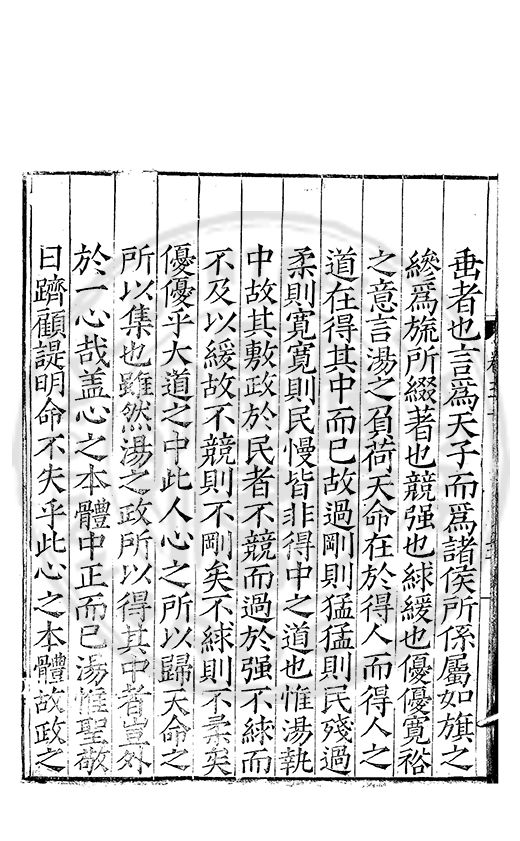 垂者也言爲天子而爲諸侯所係屬如旗之
縿爲旒所綴著也競强也絿緩也優優寬裕
之意言湯之負荷天命在於得人而得人之
道在得其中而已故過剛則猛猛則民殘過
柔則寬寬則民慢皆非得中之道也惟湯執
中故其敷政於民者不競而過於强不絿而
不及以緩故不競則不剛矣不絿則不柔矣
優優乎大道之中此人心之所以歸天命之
所以集也雖然湯之政所以得其中者豈外
於一心哉盖心之本體中正而已湯惟聖敬
日躋顧諟明命不失乎此心之本體故政之